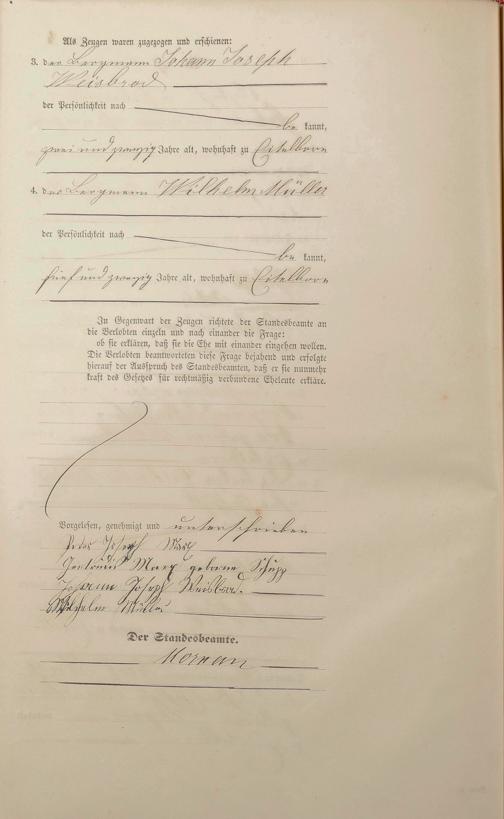 Als Zeugen waren zugezogen und erschienen:
3. der Bergmann Johann Joseph
Weisbrod
der Persönlichkeit nach
be kannt,
zwei und zwanzig Jahre alt, wohnhaft zu Eitelborn
4. der Bergmann Wilhelm Müller
der Persönlichkeit nach
be kannt,
fünf und zwanzig Jahre alt, wohnhaft zu Eitelborn
In Gegenwart der Zeugen richtete der Standesbeamte an
die Verlobten einzeln und nach einander die Frage:
ob sie erklären, daß sie die Ehe mit einander eingehen wollen.
Die Verlobten beantworteten diese Frage bejahend und erfolgte
hierauf der Ausspruch des Standesbeamten, daß er sie nunmehr
kraft des Gesetzes für rechtmäßig verbundene Eheleute erkläre.
Vorgelesen, genehmigt und unterschrieben
Peter Joseph Marx
Gertrude Marx geborene Schupp
Johann Joseph Weisbrod.
Wilhelm Müller
Der Standesbeamte.